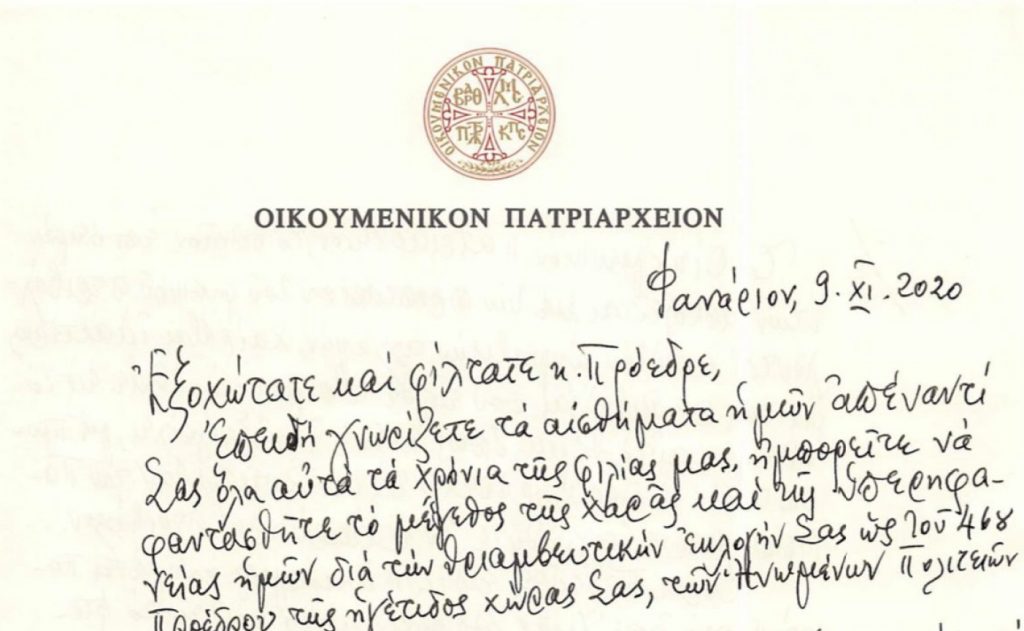 ΟΙΚΟΥΜΕΝΙΚΟΝ ΠΑΤΡΙΑΡΧΕΙΟΝ
ΒΑΡΘ
ΠΤΡ ΚΠΣ
ΟΙΚΟΥΜΕΝΙΚΟΝ ΠΑΤΡΙΑΡΧΕΙΟΝ
Φανάριον, 9.XI.2020
Ἐξοχώτατε καί φίλτατε κ. Πρόεδρε,
Ἐπειδή γνωρίζετε τά αἰσθήματα ἡμῶν ἀπέναντί
Σας ὅλα αὐτά τά χρόνια τῆς φιλίας μας, ἠμπορεῖτε νά
φαντασθῆτε τό μέγεθος τῆς χαρᾶς καί τῆς ὑπερηφα-
νείας ἡμῶν διά τήν θριαμβευτικήν ἐκλογήν Σας ὡς τοῦ 46ου
Προέδρου τῆς ἡγέτιδος χώρας Σας, τῶν Ἡνωμένων Πολιτειῶν